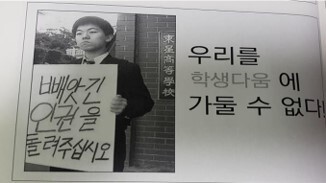 빼앗긴
인권을
돌려주십시오
東星高等學校
우리를
학생다움 에
가둘 수 없다!